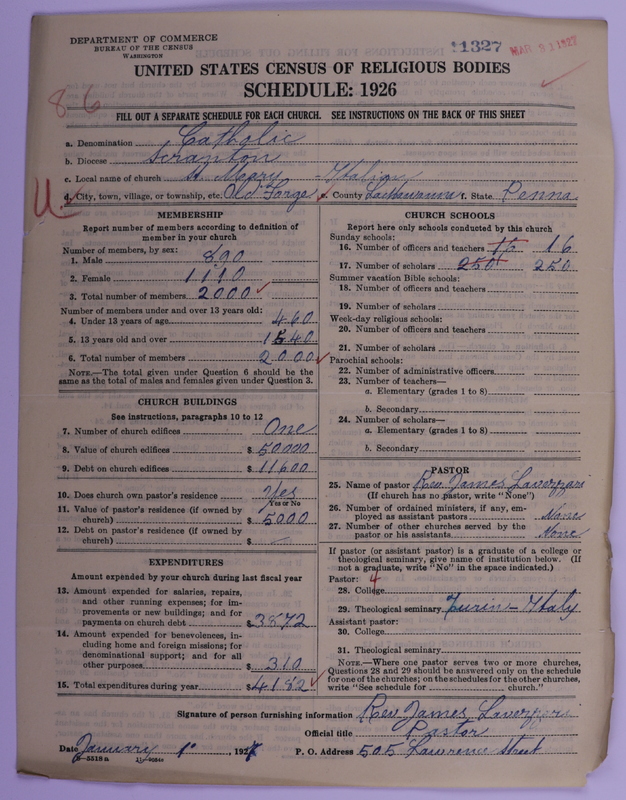 DEPARTMENT OF COMMERCE
BUREAU OF THE CENSUS
WASHINGTON
11327
MAR 31 1927
UNITED STATES CENSUS OF RELIGIOUS BODIES
SCHEDULE: 1926
86
FILL OUT A SEPARATE SCHEDULE FOR EACH CHURCH. SEE INSTRUCTIONS ON THE BACK OF THIS SHEET
a. Denomination Catholic
b. Diocese Scranton
c. Local name of church St Mary - Italian
d. City, town, village, or township, etc. Old Forge e. County Lackawanna f. State Penna
MEMBERSHIP
Report number of members according to definition of
member in your church
Number of members, by sex:
1. Male 890
2. Female 1110
3. Total number of members 2000
Number of members under and over 13 years old:
4. Under 13 years of age 460
5. 13 years old and over 1540
6. Total number of members 2000
NOTE.—The total given under Question 6 should be the
same as the total of males and females given under Question 3.
CHURCH BUILDINGS
See instructions, paragraphs 10 to 12
7. Number of church edifices One
8. Value of church edifices $ 50000
9. Debt on church edifices $ 11600
10. Does church own pastor's residence Yes
Yes or No
11. Value of pastor's residence (if owned by
church) $ 5000
12. Debt on pastor's residence (if owned by
church) $ —
EXPENDITURES
Amount expended by church during last fiscal year
13. Amount expended for salaries, repairs,
and other running expenses; for im-
provements or new buildings; and for
payments on church debt $ 3872
14. Amount expended for benevolences, in-
cluding home and foreign missions; for
denominational support; and for all
other purposes $ 310
15. Total expenditures during year $ 4182
CHURCH SCHOOLS
Report here only schools conducted by this church
Sunday schools:
16. Number of officers and teachers 16 16
17. Number of scholars 250 250
Summer vacation Bible schools:
18. Number of officers and teachers
19. Number of scholars
Week-day religious schools:
20. Number of officers and teachers
21. Number of scholars
Parochial schools:
22. Number of administrative officers
23. Number of teachers—
a. Elementary (grades 1 to 8)
b. Secondary
24. Number of scholars—
a. Elementary (grades 1 to 8)
b. Secondary
PASTOR
25. Name of pastor Rev. James
(If church has no pastor, write "None")
26. Number of ordained ministers, if any, em-
ployed as assistant pastors None
27. Number of other churches served by the
pastor or his assistants None
If pastor (or assistant pastor) is a graduate of a college or
theological seminary, give name of institution below. (If
not a graduate, write "No" in the space indicated.)
Pastor: 4
28. College
29. Theological seminary Turin - Italy
Assistant pastor:
30. College
31. Theological seminary
NOTE.—Where one pastor serves two or more churches,
Questions 28 and 29 should be answered only on the schedule
for one of the churches; on the schedules for the other churches,
write "See schedule for church."
Signature of person furnishing information Rev. James
Official title Pastor
Date January 1°, 1927 P. O. Address 505 Lawrence Street